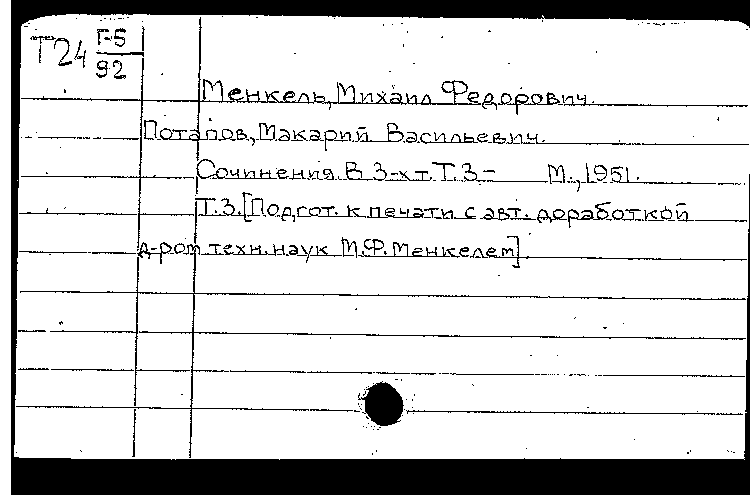 Т24 Г-5
92
Менкель, Михаил Федорович.
Потапов, Макарий Васильевич.
Сочинения. В 3-х т. Т. 3- М., 1951.
Т. 3. [Подгот. к печати с авт. доработкой
д-ром техн. наук М.Ф. Менкелем].